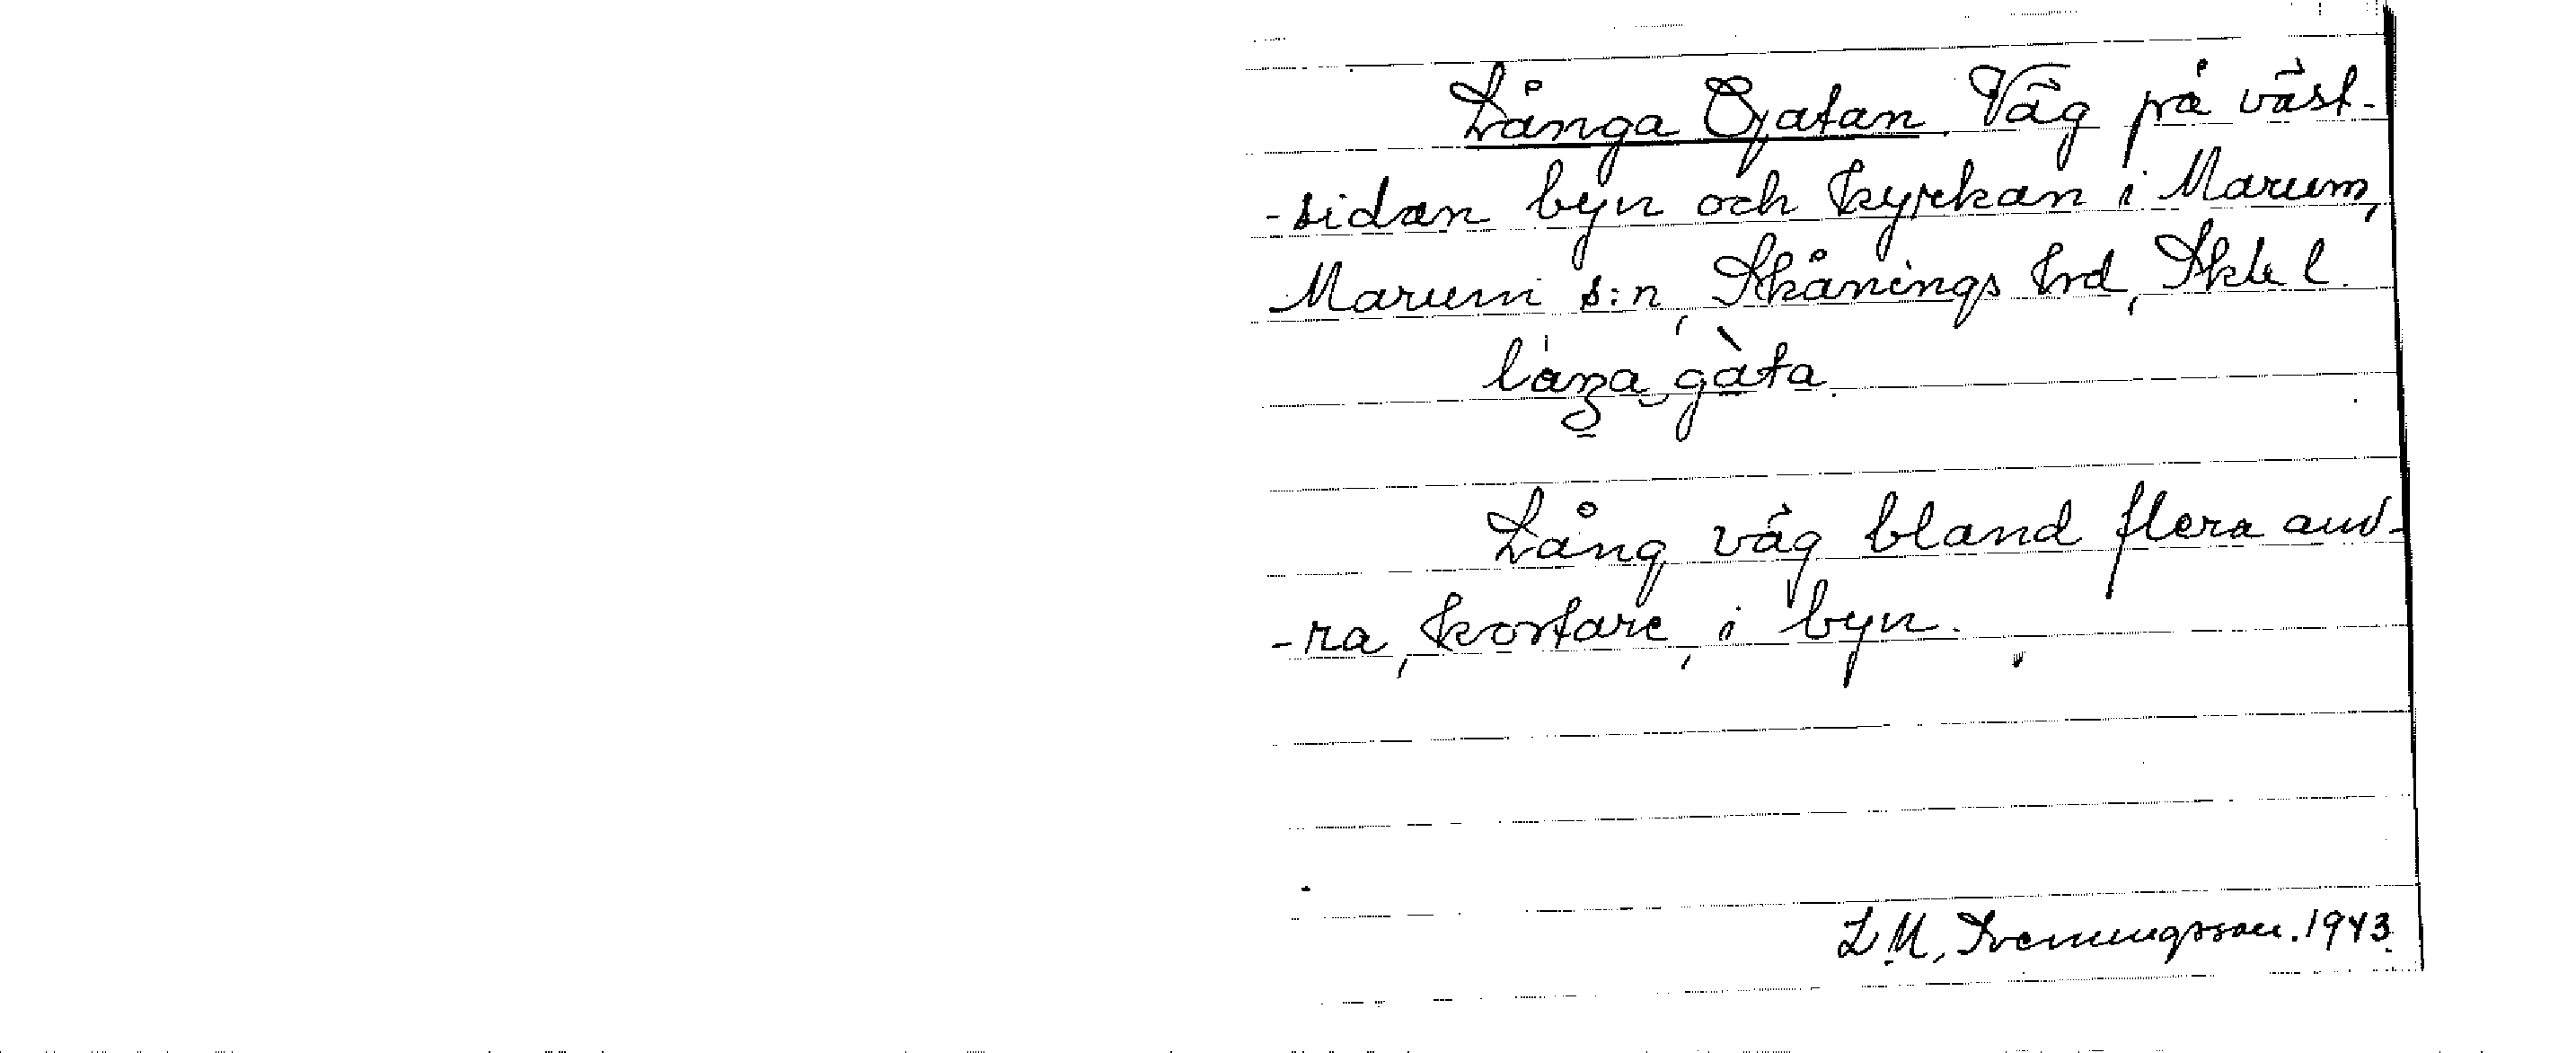 Långa Gatan. Väg på väst-
-sidan byn och kyrkan i Marum,
Marum s:n, Skånings hrd, Skbl l.
Lång väg bland flera and-
-ra, kortare, i byn.
L.M. Svenungsson. 1943.